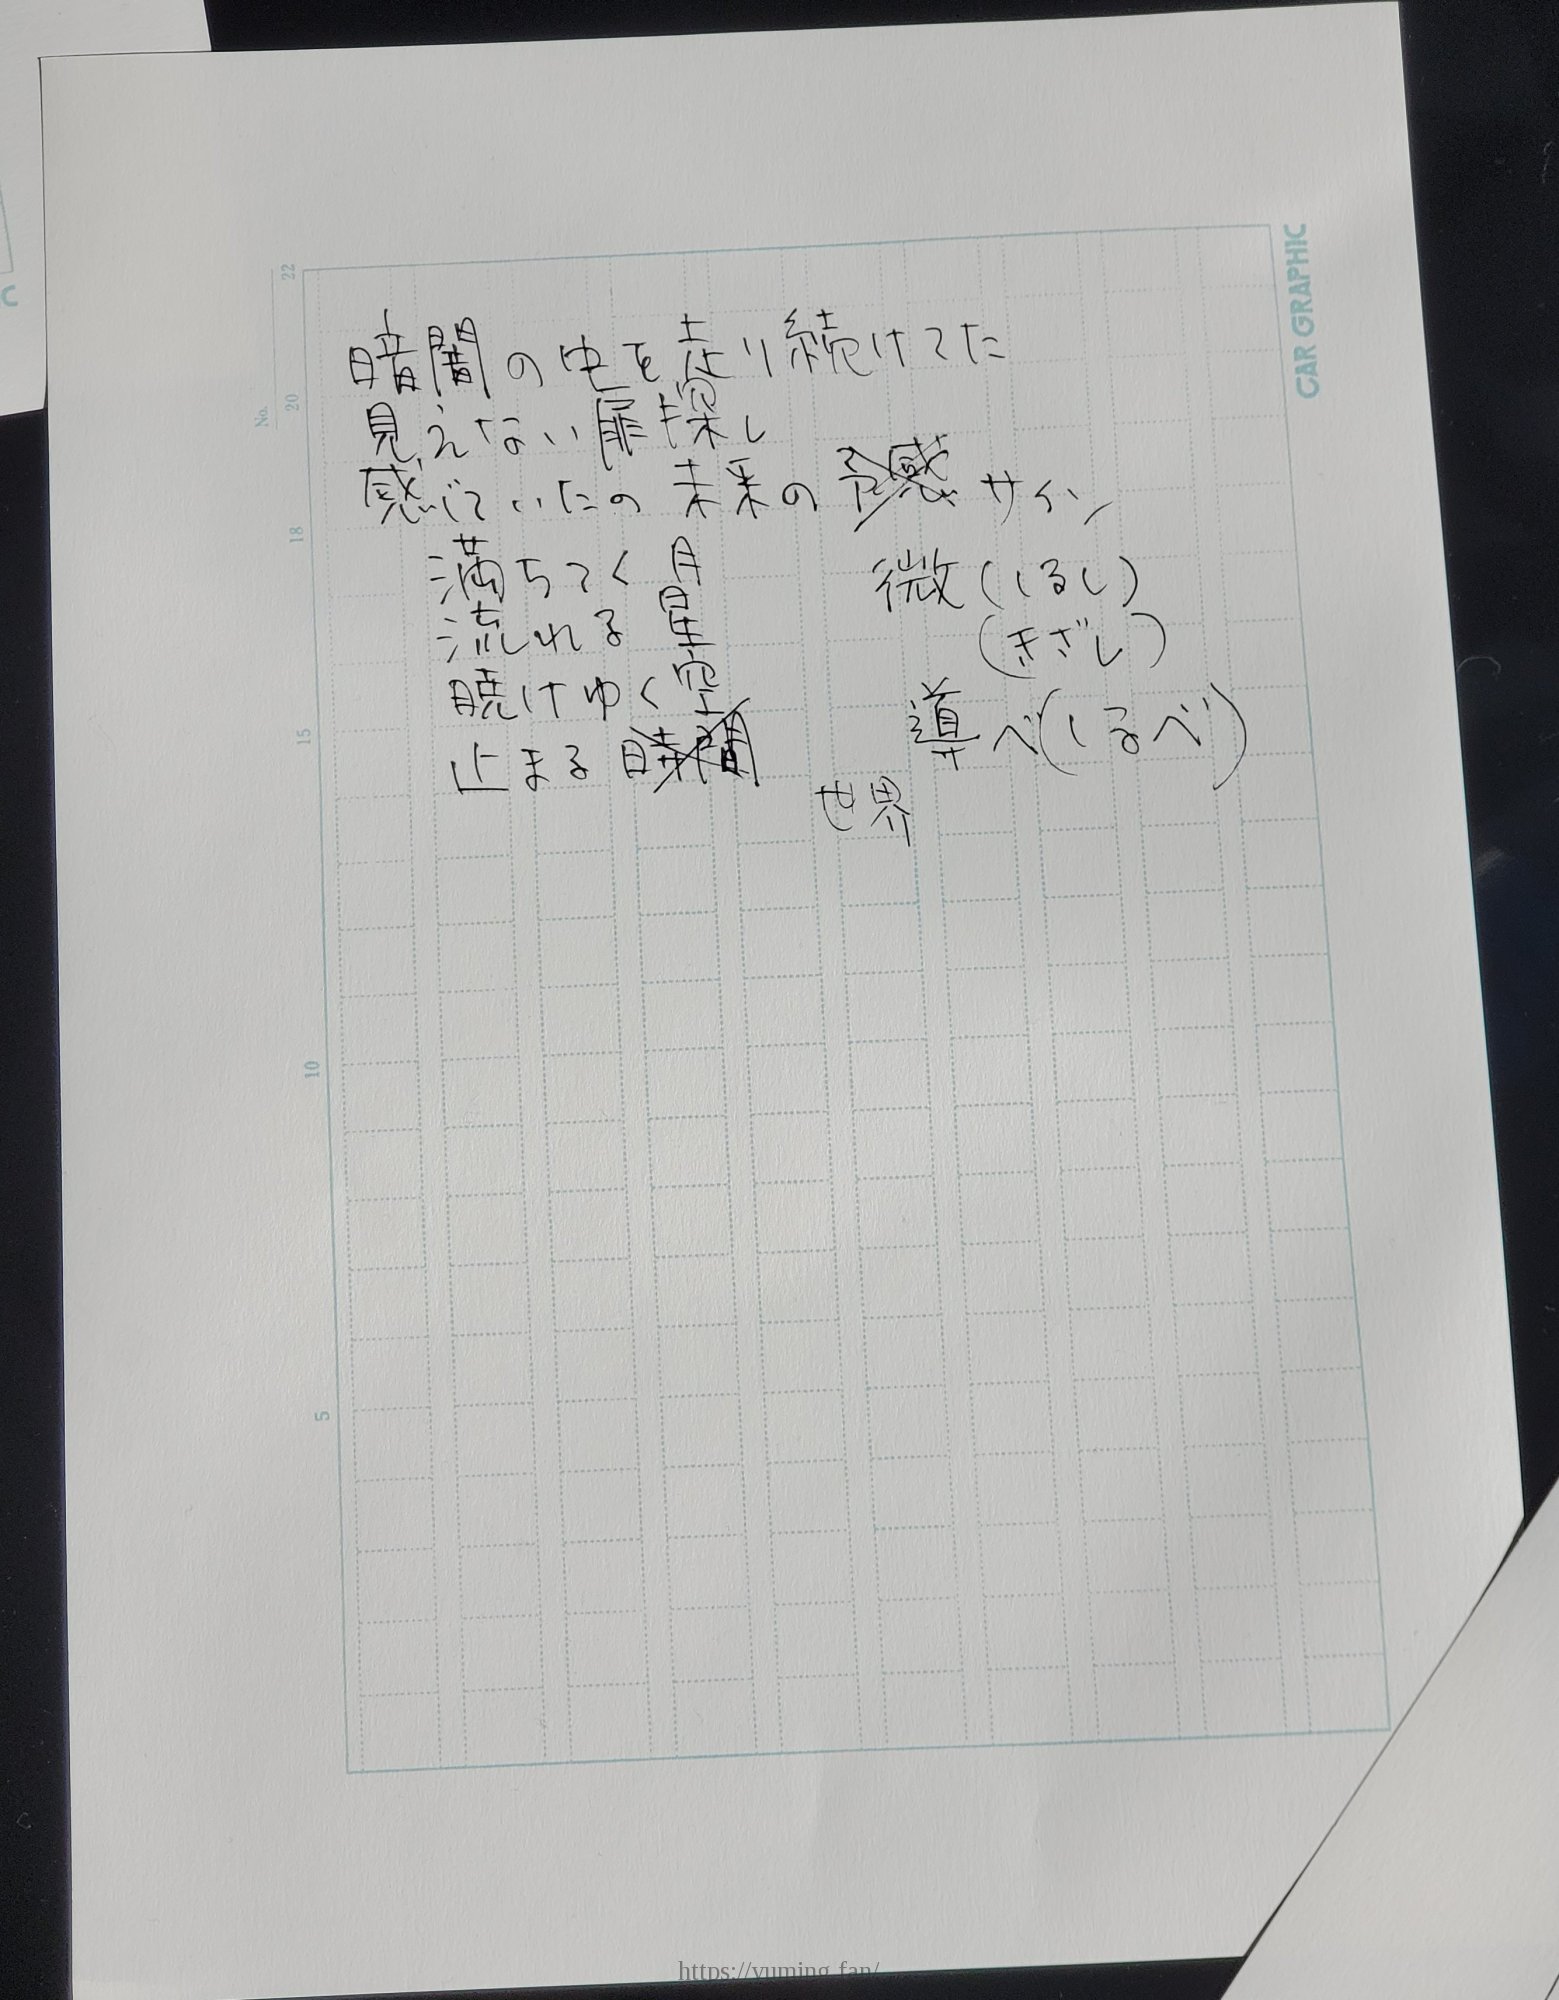 暗闇の中を走り続けてた
見えない扉探し
感じていたの 未来の 予感 サイン
満ちてく 月
流れる 星
暁けゆく 空
止まる 時間
世界
微(しるし)
(きざし)
導べ(しるべ)
CAR GRAPHIC
No.
22
20
18
15
10
5
https://yuming.fan/